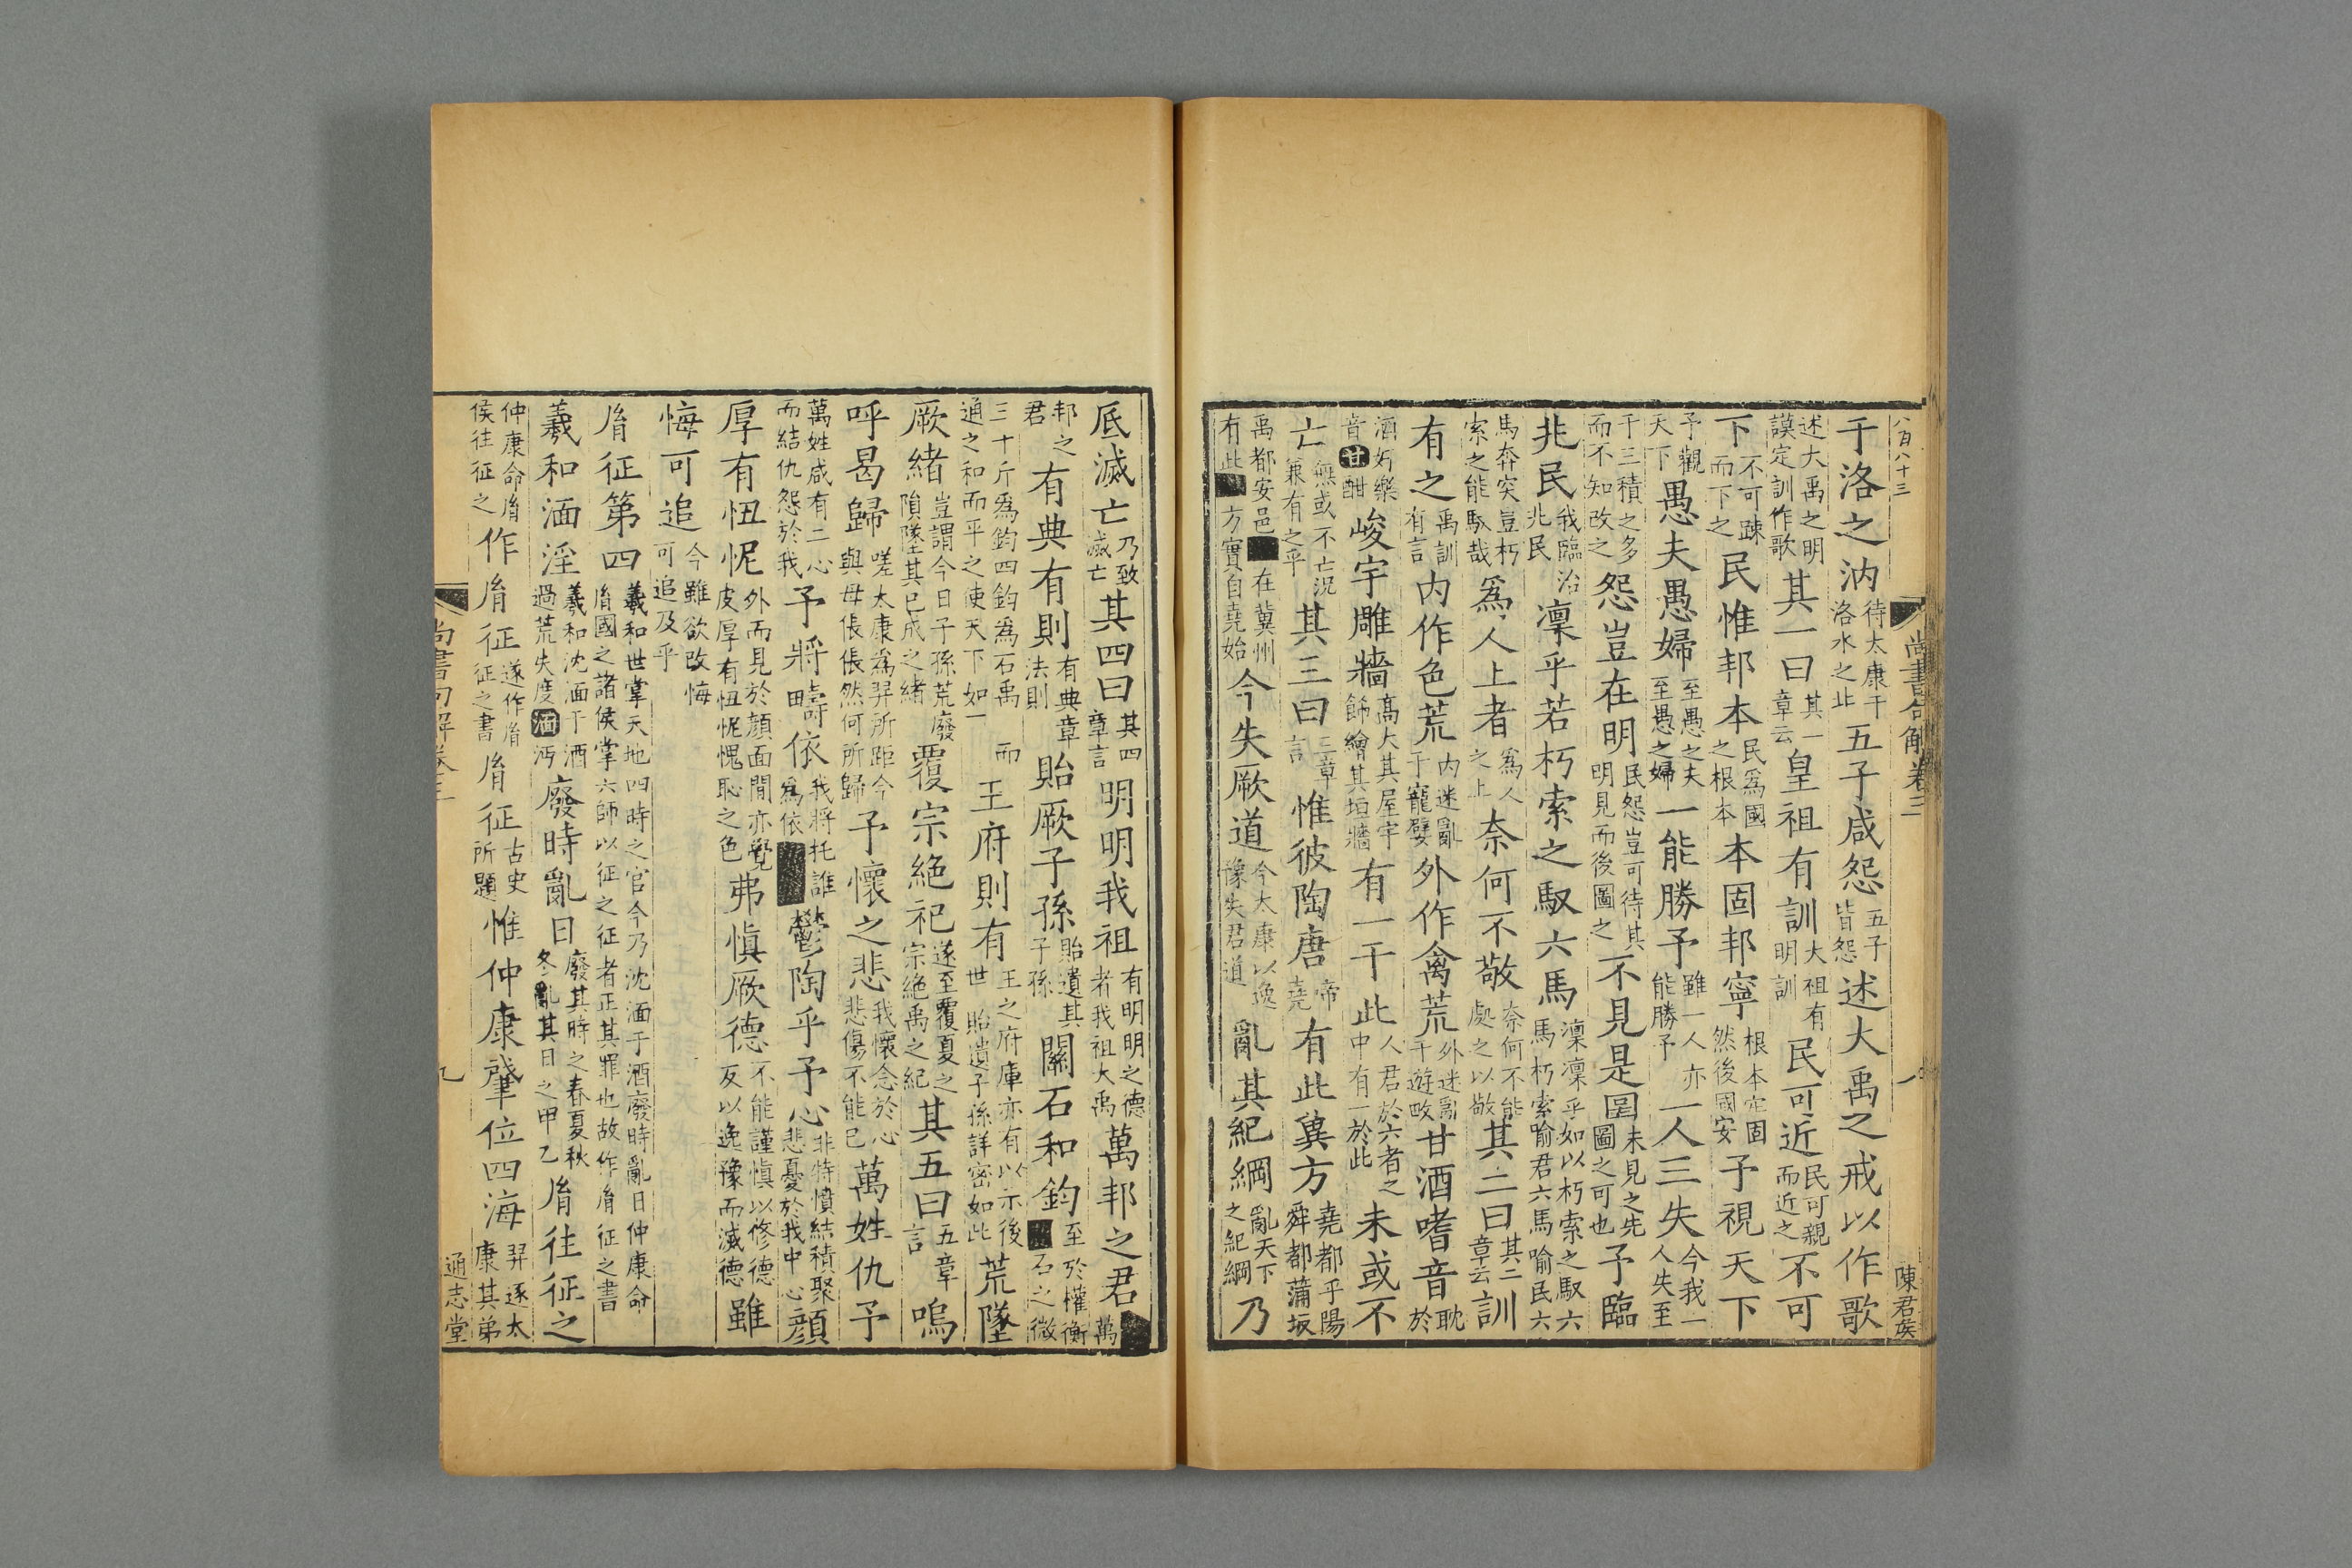 八百八十三 尚書句解卷三 八 陳君侯
于洛之汭待太康于洛水之北五子咸怨五子皆怨述大禹之戒以作歌
述大禹之明謨定訓作歌其一曰其一章云皇祖有訓大祖有明訓民可近民可親而近之不可
下不可疎而下之民惟邦本民爲國之根本本固邦寧根本定固然後國安予視天下
予觀天下愚夫愚婦至愚之夫至愚之婦一能勝予雖一人亦能勝予一人三失今我一人失至
于三積之多而不知改之怨豈在明民怨豈可待其明見而後圖之不見是圖未見之先圖之可也予臨
兆民我臨治兆民凜乎若朽索之馭六馬凜凜乎如以朽索之馭六馬朽索喻君六馬喻民六
馬奔突豈朽索之能馭哉爲人上者爲人之上奈何不敬奈何不能處之以敬其二曰其二章云訓
有之禹訓有言内作色荒内迷亂于寵嬖外作禽荒外迷亂于遊畋甘酒嗜音耽於
酒好樂音甘酣峻宇雕牆高大其屋宇飾繪其垣牆有一于此人君於六者之中有一於此未或不
亡無或不亡況兼有之乎其三曰三章言惟彼陶唐帝堯有此冀方堯都乎陽舜都蒲坂
禹都安邑在冀州有此方實自堯始今失厥道今太康以逸豫失君道亂其紀綱亂天下之紀綱乃
底滅亡乃致滅亡其四曰其四章言明明我祖有明明之德者我祖大禹萬邦之君萬
邦之君有典有則有典章法則貽厥子孫貽遺其子孫關石和鈞至於權衡石之微
三十斤爲鈞四鈞爲石禹通之和而平之使天下如一而王府則有王之府庫亦有以示後世貽遺子孫詳密如此荒墜
厥緒豈謂今日子孫荒廢隕墜其已成之緒覆宗絕祀遂至覆夏之宗絕禹之紀其五曰五章言嗚
呼曷歸嗟太康爲羿所距今與母倀倀然何所歸予懷之悲我懷念於心悲傷不能已萬姓仇予
萬姓咸有二心而結仇怨於我予將疇依我將托誰爲依鬱陶乎予心非特憤結積聚悲憂於我中心顔
厚有忸怩外而見於顔面間亦覺皮厚有忸怩愧恥之色弗愼厥德不能謹愼以修德反以逸豫而滅德雖
悔可追今雖欲改悔可追及乎
胤征第四羲和世掌天地四時之官今乃沈湎于酒廢時亂日仲康命胤國之諸侯掌六師以征之征者正其罪也故作胤征之書
羲和湎淫羲和沈湎于酒過荒失度湎沔廢時亂日廢其時之春夏秋冬亂其日之甲乙胤往征之
仲康命胤侯往征之作胤征遂作胤征之書胤征古史所題惟仲康肇位四海羿逐太康其弟
尚書句解卷三 九 通志堂